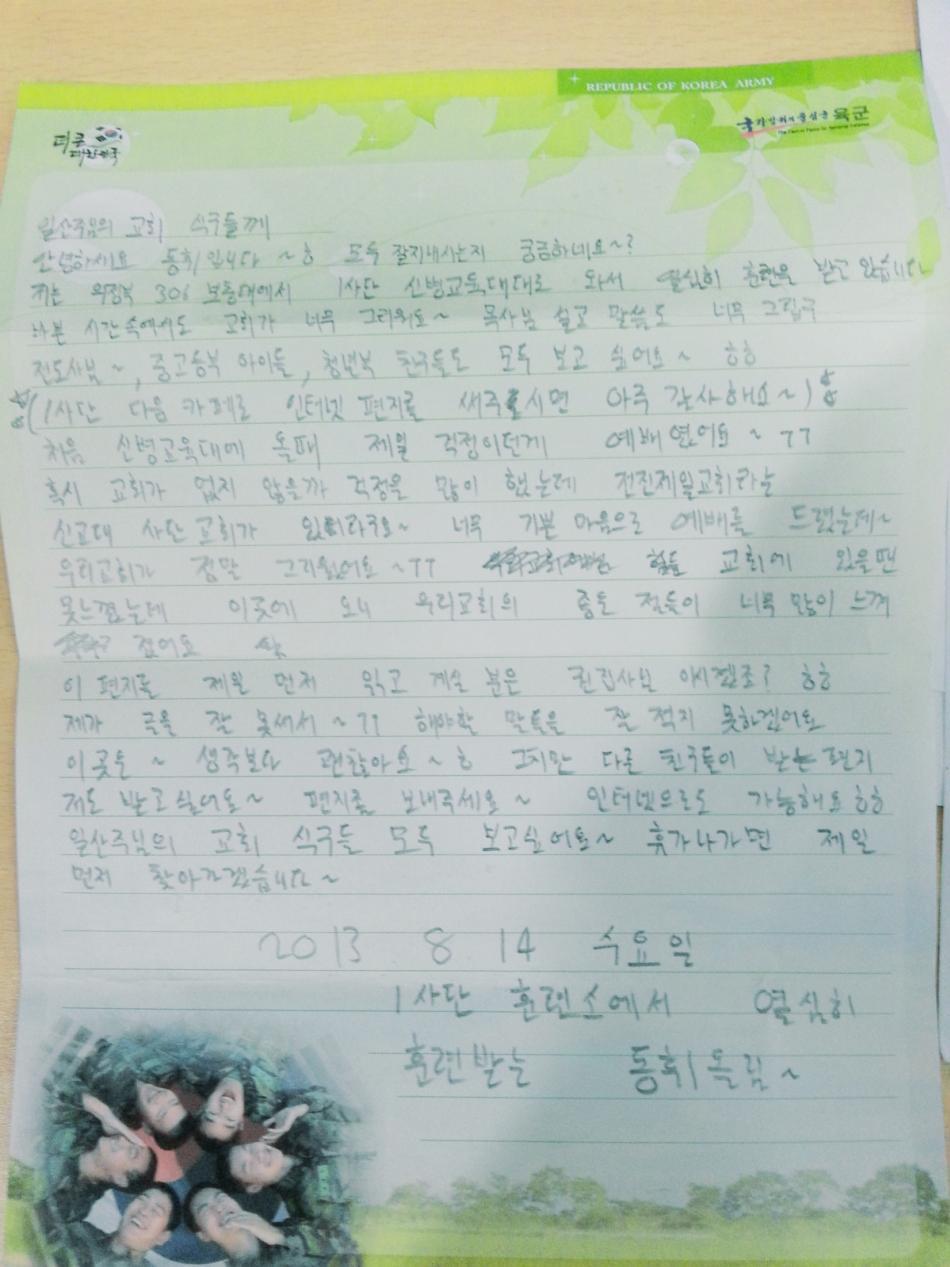 REPUBLIC OF KOREA ARMY
더 큰
대한민국
육군
일산주님의 교회 식구들께
안녕하세요 동휘입니다 ~ㅎ 모두 잘지내시는지 궁금하네요~?
저는 의정부 306 보충대에서 1사단 신병교육대대로 와서 열심히 훈련을 받고 있습니다
바쁜 시간속에서도 교회가 너무 그리워요~ 목사님 설교 말씀도 너무 그립구
전도사님~, 중고등부 아이들, 청년부 친구들도 모두 보고 싶어요~ ㅎㅎ
☆(1사단 다음 카페로 인터넷 편지를 써주시면 아주 감사해요~)☆
처음 신병교육대에 올때 제일 걱정이던게 예배였어요~ ㅠㅠ
혹시 교회가 없지 않을까 걱정을 많이 했는데 전진제일교회라는
신교대 사단교회가 있더라구요~ 너무 기쁜 마음으로 예배를 드렸는데~
우리교회가 정말 그리웠어요~ㅠㅠ 교회에 있을땐
못느꼈는데 이곳에 오니 우리교회의 좋은 점들이 너무 많이 느껴
졌어요
이 편지를 제일 먼저 읽고 계실 분은 권집사님 이시겠죠? ㅎㅎ
제가 글을 잘 못써서~ㅠㅠ 해야할 말들을 잘 적지 못하겠어요
이곳은~ 생각보다 괜찮아요~ㅎ 그치만 다른 친구들이 받는 편지
저도 받고싶어요~ 편지를 보내주세요~ 인터넷으로도 가능해요ㅎㅎ
일산주님의 교회 식구들 모두 보고싶어요~ 휴가나가면 제일
먼저 찾아가겠습니다~
2013 8 14 수요일
1사단 훈련소에서 열심히
훈련받는 동휘올림~